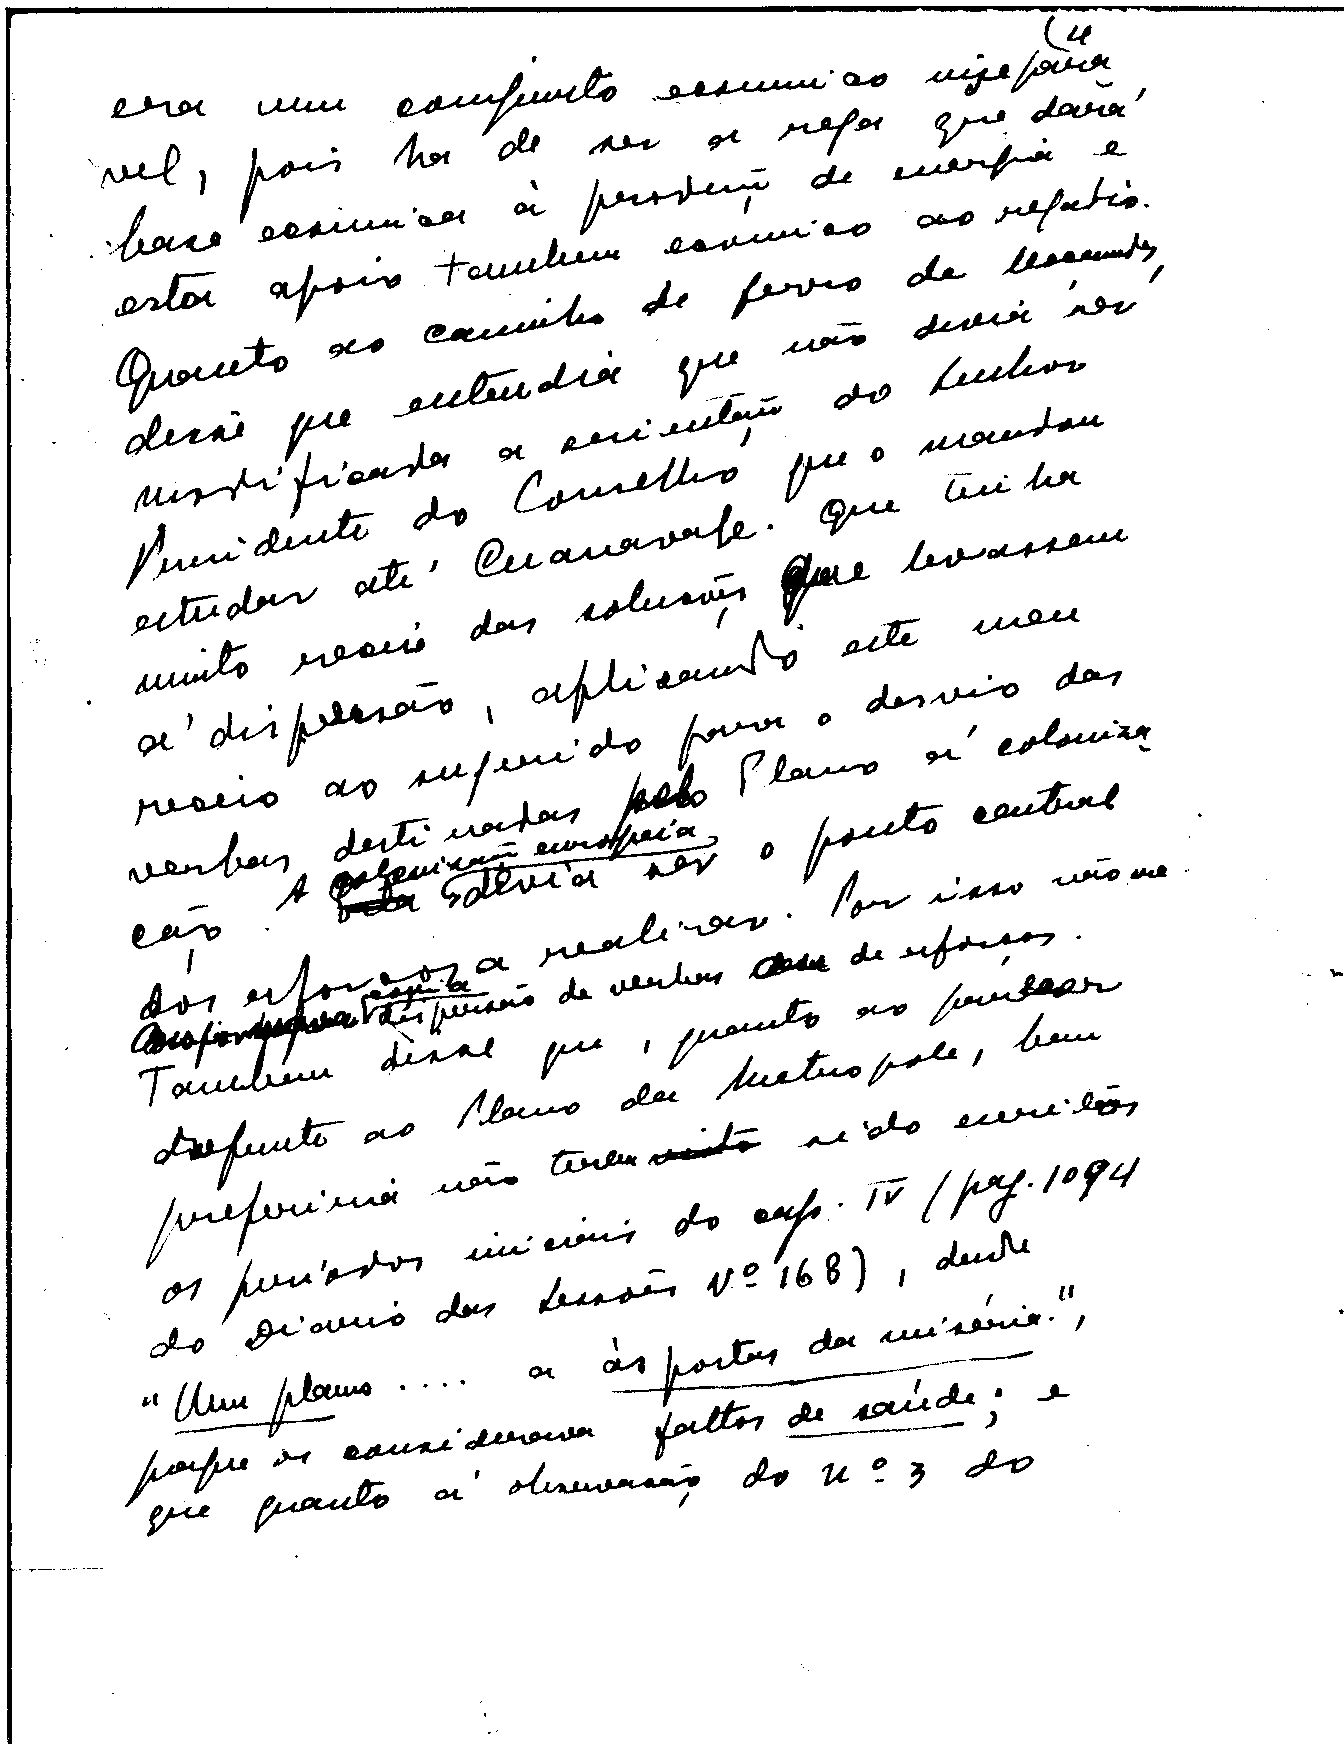 (4
era um conjunto economico insepara
vel, pois ha de ser a rega que dará
base economica à produção de energia e
esta apoio tambem económico ao regadio.
Quanto ao caminho de ferro de Mocamedes,
disse que entendia que não devia ser
modificada a orientação do Senhor
Presidente do Conselho, que o mandou
estudar até Cuanavale. Que tinha
muito receio das soluções que levassem
á dispersão, aplicando este meu
receio ao sugerido para o desvio das
verbas destinadas pelo Plano á coloniza
ção. A colonização europeia
devia ser o ponto central
dos esforços a realizar. Por isso não me
dispersão de verbas de esforços.
Tambem disse que, quanto ao parecer
do Plano da Metropole, bem
preferiria não terem sido escritos
os periodos iniciais do cap. IV (pag. 1094
do Diario das Sessões Nº 168), desde
"Um plano .... a ás portas da miséria.",
porque os considerava faltos de saúde; e
que quanto á observação do nº 3 do